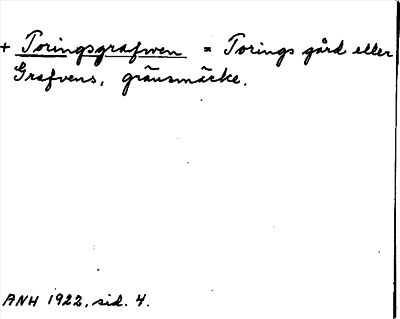 + Toringsgrafwen = Torings gård eller
Grafvens, gränsmärke.
ANH 1922, sid. 4.